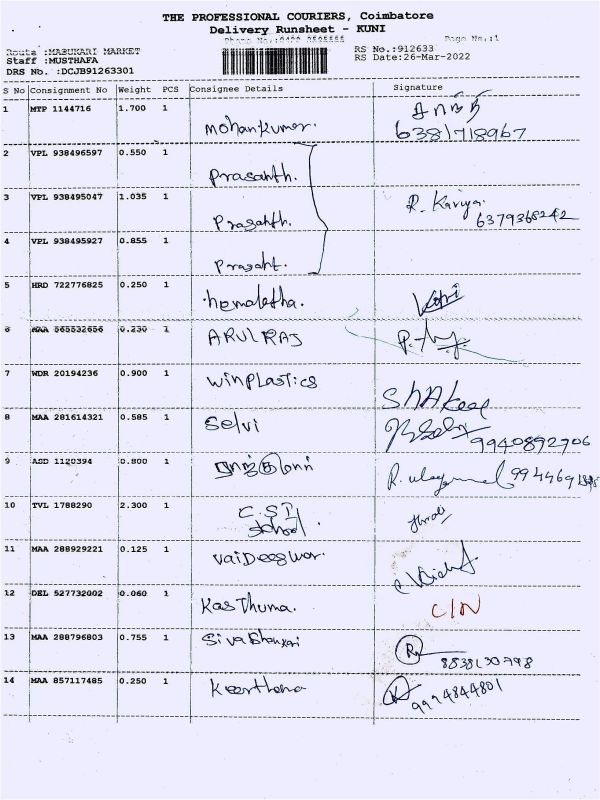 THE PROFESSIONAL COURIERS, Coimbatore
Delivery Runsheet - KUNI
Page No.:1
Route :MABUKARI MARKET
RS No.:912633
Staff :MUSTHAFA
RS Date:26-Mar-2022
DRS No. :DCJB91263301
S No Consignment No Weight PCS Consignee Details Signature
1 MTP 1144716 1.700 1 mohankumar. 6381718967
2 VPL 938496597 0.550 1 Prasanth.
3 VPL 938495047 1.035 1 Prasanth. R. Kaviya. 6379368242
4 VPL 938495927 0.855 1 Prasaht.
5 HRD 722776825 0.250 1 hemaletha.
6 MAA 565532656 0.230 1 ARULRAJ
7 WDR 20194236 0.900 1 winplastics SHAkeel
8 MAA 281614321 0.585 1 Selvi 9940892906
9 ASD 1120394 0.800 1
10 TVL 1788290 2.300 1 C.S.I. School.
11 MAA 288929221 0.125 1
12 DEL 527732002 0.060 1 Kasthuma. C/N
13 MAA 288796803 0.755 1
14 MAA 857117485 0.250 1 Keerthana 9994844801